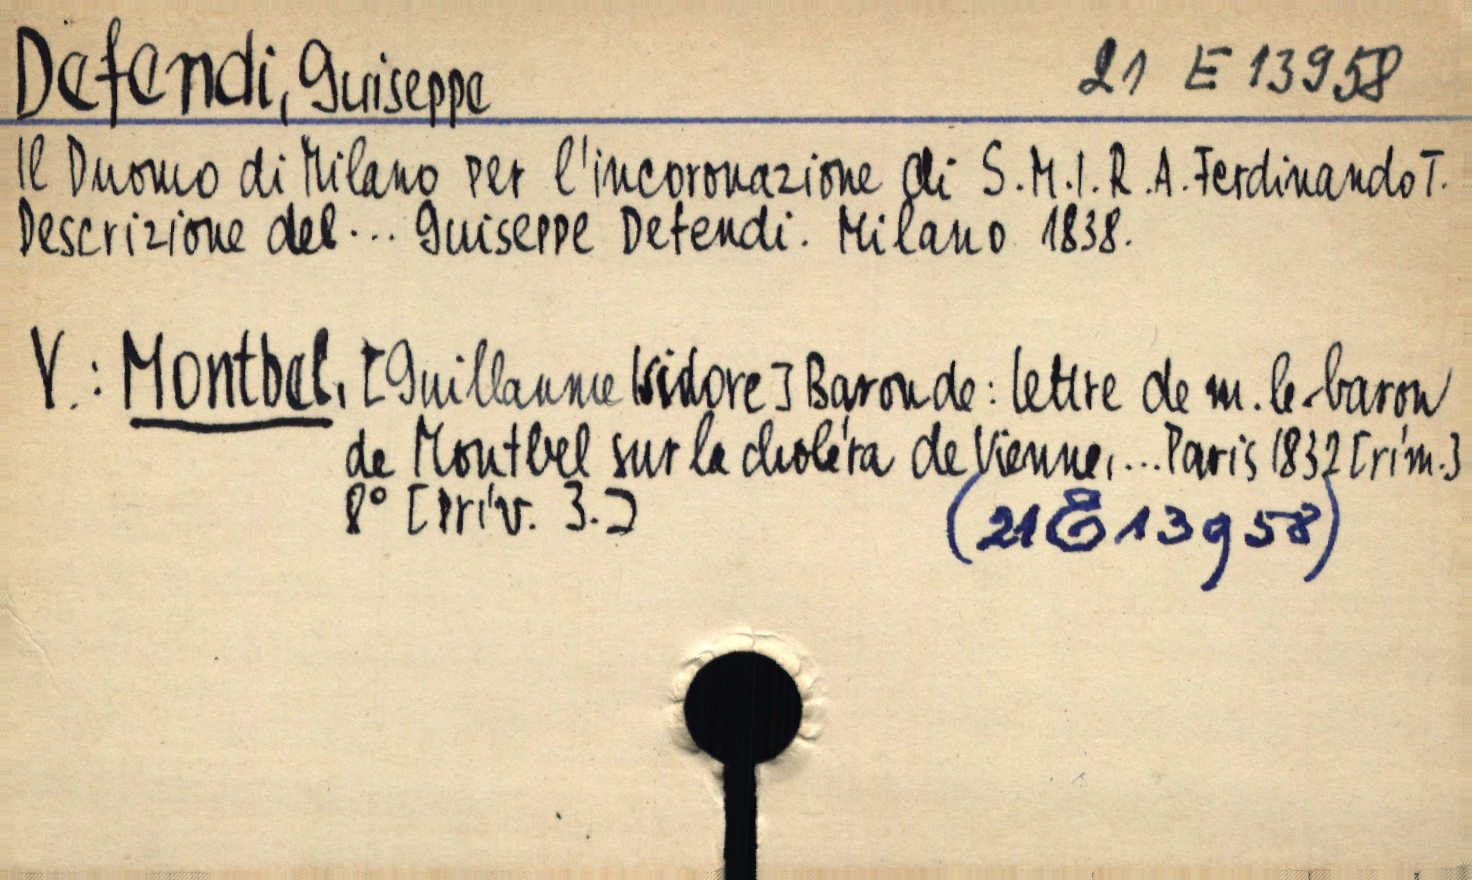 Defendi, Guiseppe
21 E 13958
Il Duomo di Milano per l'incoronazione di S.M.I.R.A. Ferdinando I.
Descrizione del... Guiseppe Defendi. Milano 1838.
V.: Montbel, [Guillaume Isidore] Baron de: lettre de m. le baron
de Montbel sur la choléra de Vienne,... Paris 1832 [rim.]
8° [priv. 3.]
(21 E 13958)